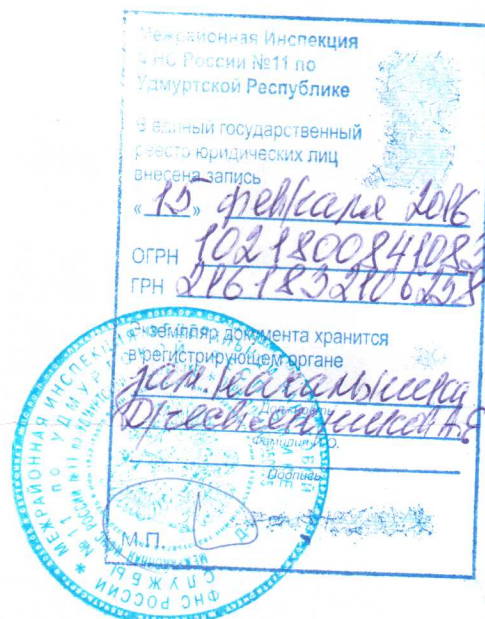 Межрайонная Инспекция
ФНС России №11 по
Удмуртской Республике
В единый государственный
реестр юридических лиц
внесена запись
« 15 » февраля 2016
ОГРН 1021800841083
ГРН 2161832106258
Экземпляр документа хранится
в регистрирующем органе
зам. начальника
Должность
Фамилия И.О.
Подпись
М.П.
МЕЖРАЙОННАЯ ИНСПЕКЦИЯ
№ 11 ПО УДМУРТ
ФНС РОССИИ
СЛУЖБЫ